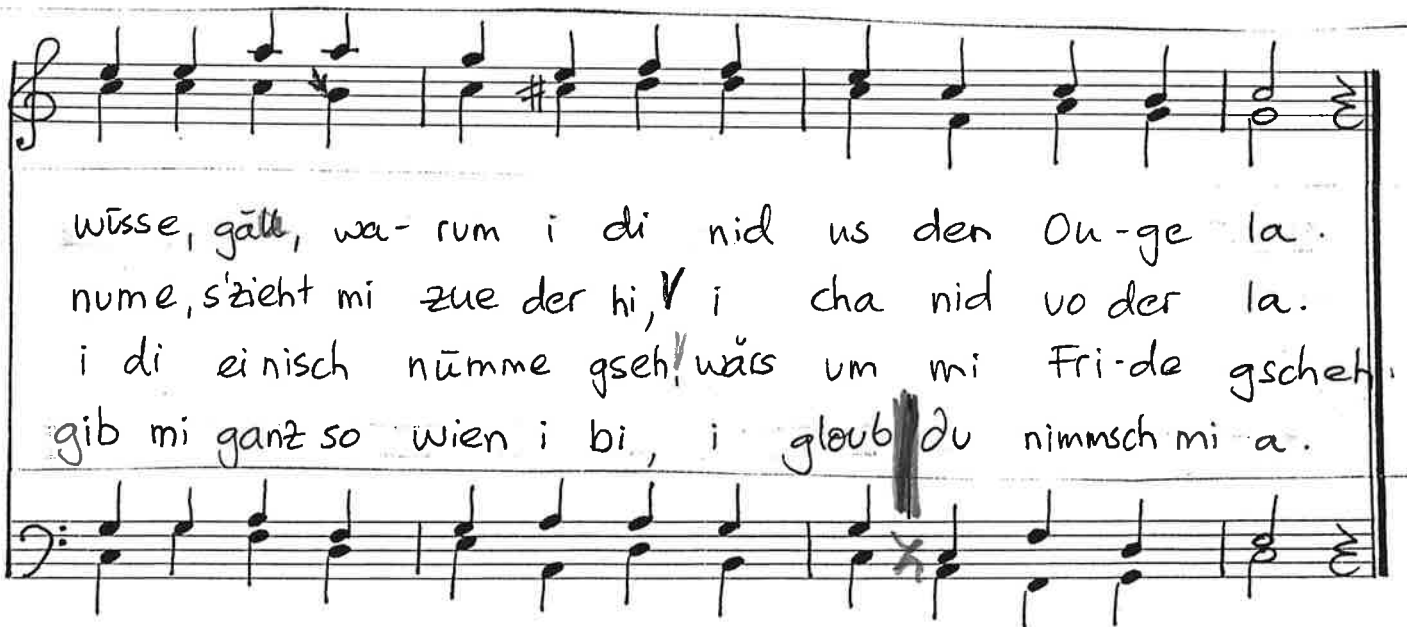 wüsse, gäll, wa- rum i di nid us den Ou-ge la.
nume, s'zieht mi zue der hi, i cha nid vo der la.
i di einisch nümme gseh! wärs um mi Fri-de gscheh.
gib mi ganz so wien i bi, i gloub du nimmsch mi a.